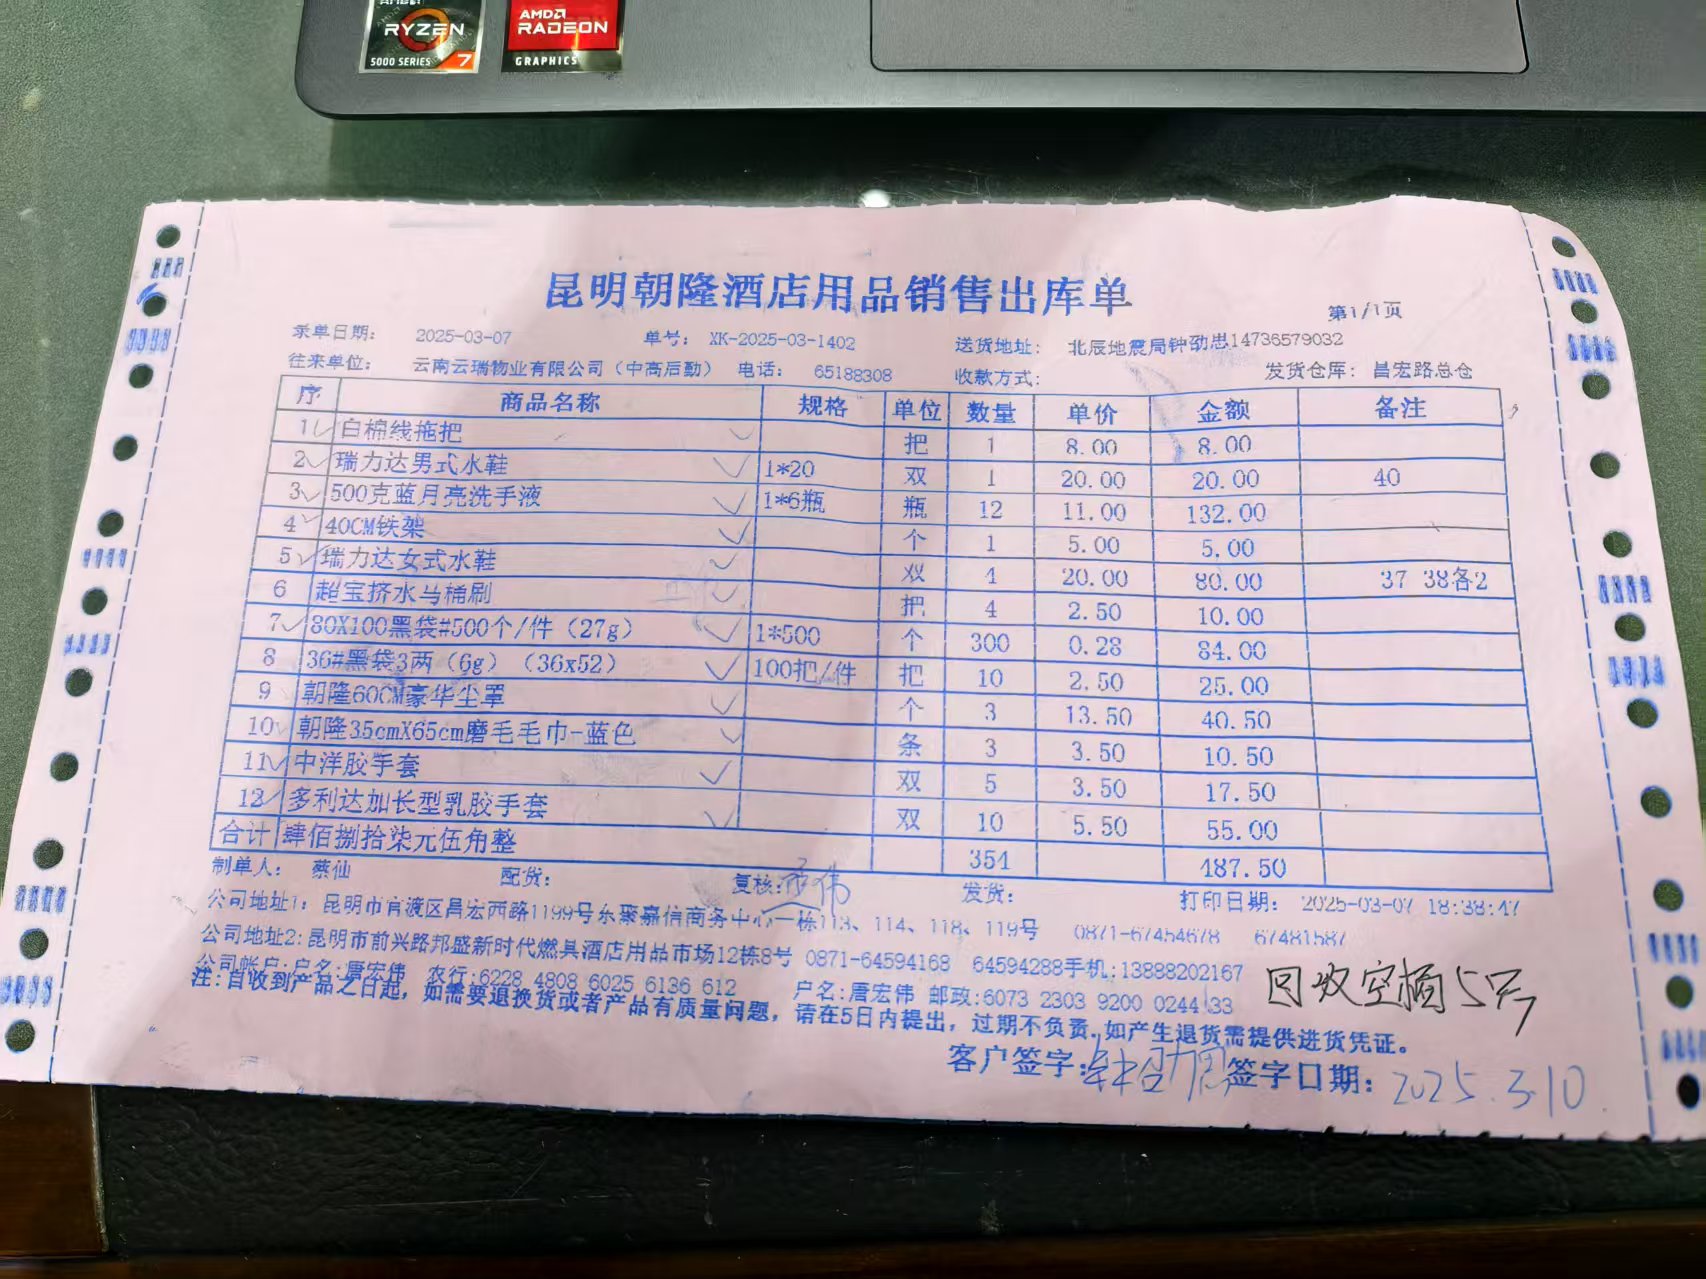 AMD
RYZEN
5000 SERIES 7
AMD
RADEON
GRAPHICS
昆明朝隆酒店用品销售出库单
第1/1页
录单日期: 2025-03-07 单号: XK-2025-03-1402 送货地址: 北辰地震局钟劭思14736579032
往来单位: 云南云瑞物业有限公司（中高后勤） 电话: 65188308 收款方式: 发货仓库: 昌宏路总仓
序 商品名称 规格 单位 数量 单价 金额 备注
1 白棉线拖把 把 1 8.00 8.00
2 瑞力达男式水鞋 1*20 双 1 20.00 20.00 40
3 500克蓝月亮洗手液 1*6瓶 瓶 12 11.00 132.00
4 40CM铁架 个 1 5.00 5.00
5 瑞力达女式水鞋 双 4 20.00 80.00 37 38各2
6 超宝挤水马桶刷 把 4 2.50 10.00
7 80X100黑袋#500个/件（27g） 1*500 个 300 0.28 84.00
8 36#黑袋3两（6g）（36x52） 100把/件 把 10 2.50 25.00
9 朝隆60CM豪华尘罩 个 3 13.50 40.50
10 朝隆35cmX65cm磨毛毛巾-蓝色 条 3 3.50 10.50
11 中洋胶手套 双 5 3.50 17.50
12 多利达加长型乳胶手套 双 10 5.50 55.00
合计 肆佰捌拾柒元伍角整 354 487.50
制单人: 蔡仙 配货: 复核: 发货: 打印日期: 2025-03-07 18:38:47
公司地址1: 昆明市官渡区昌宏西路1199号东聚嘉信商务中心一栋113、114、118、119号 0871-67454678 67481587
公司地址2:昆明市前兴路邦盛新时代燃具酒店用品市场12栋8号 0871-64594168 64594288手机:13888202167
公司帐户:户名:唐宏伟 农行:6228 4808 6025 6136 612 户名:唐宏伟 邮政:6073 2303 9200 0244 33
回收空桶5只
注:自收到产品之日起，如需要退换货或者产品有质量问题，请在5日内提出，过期不负责.如产生退货需提供进货凭证。
客户签字: 签字日期: 2025.3.10